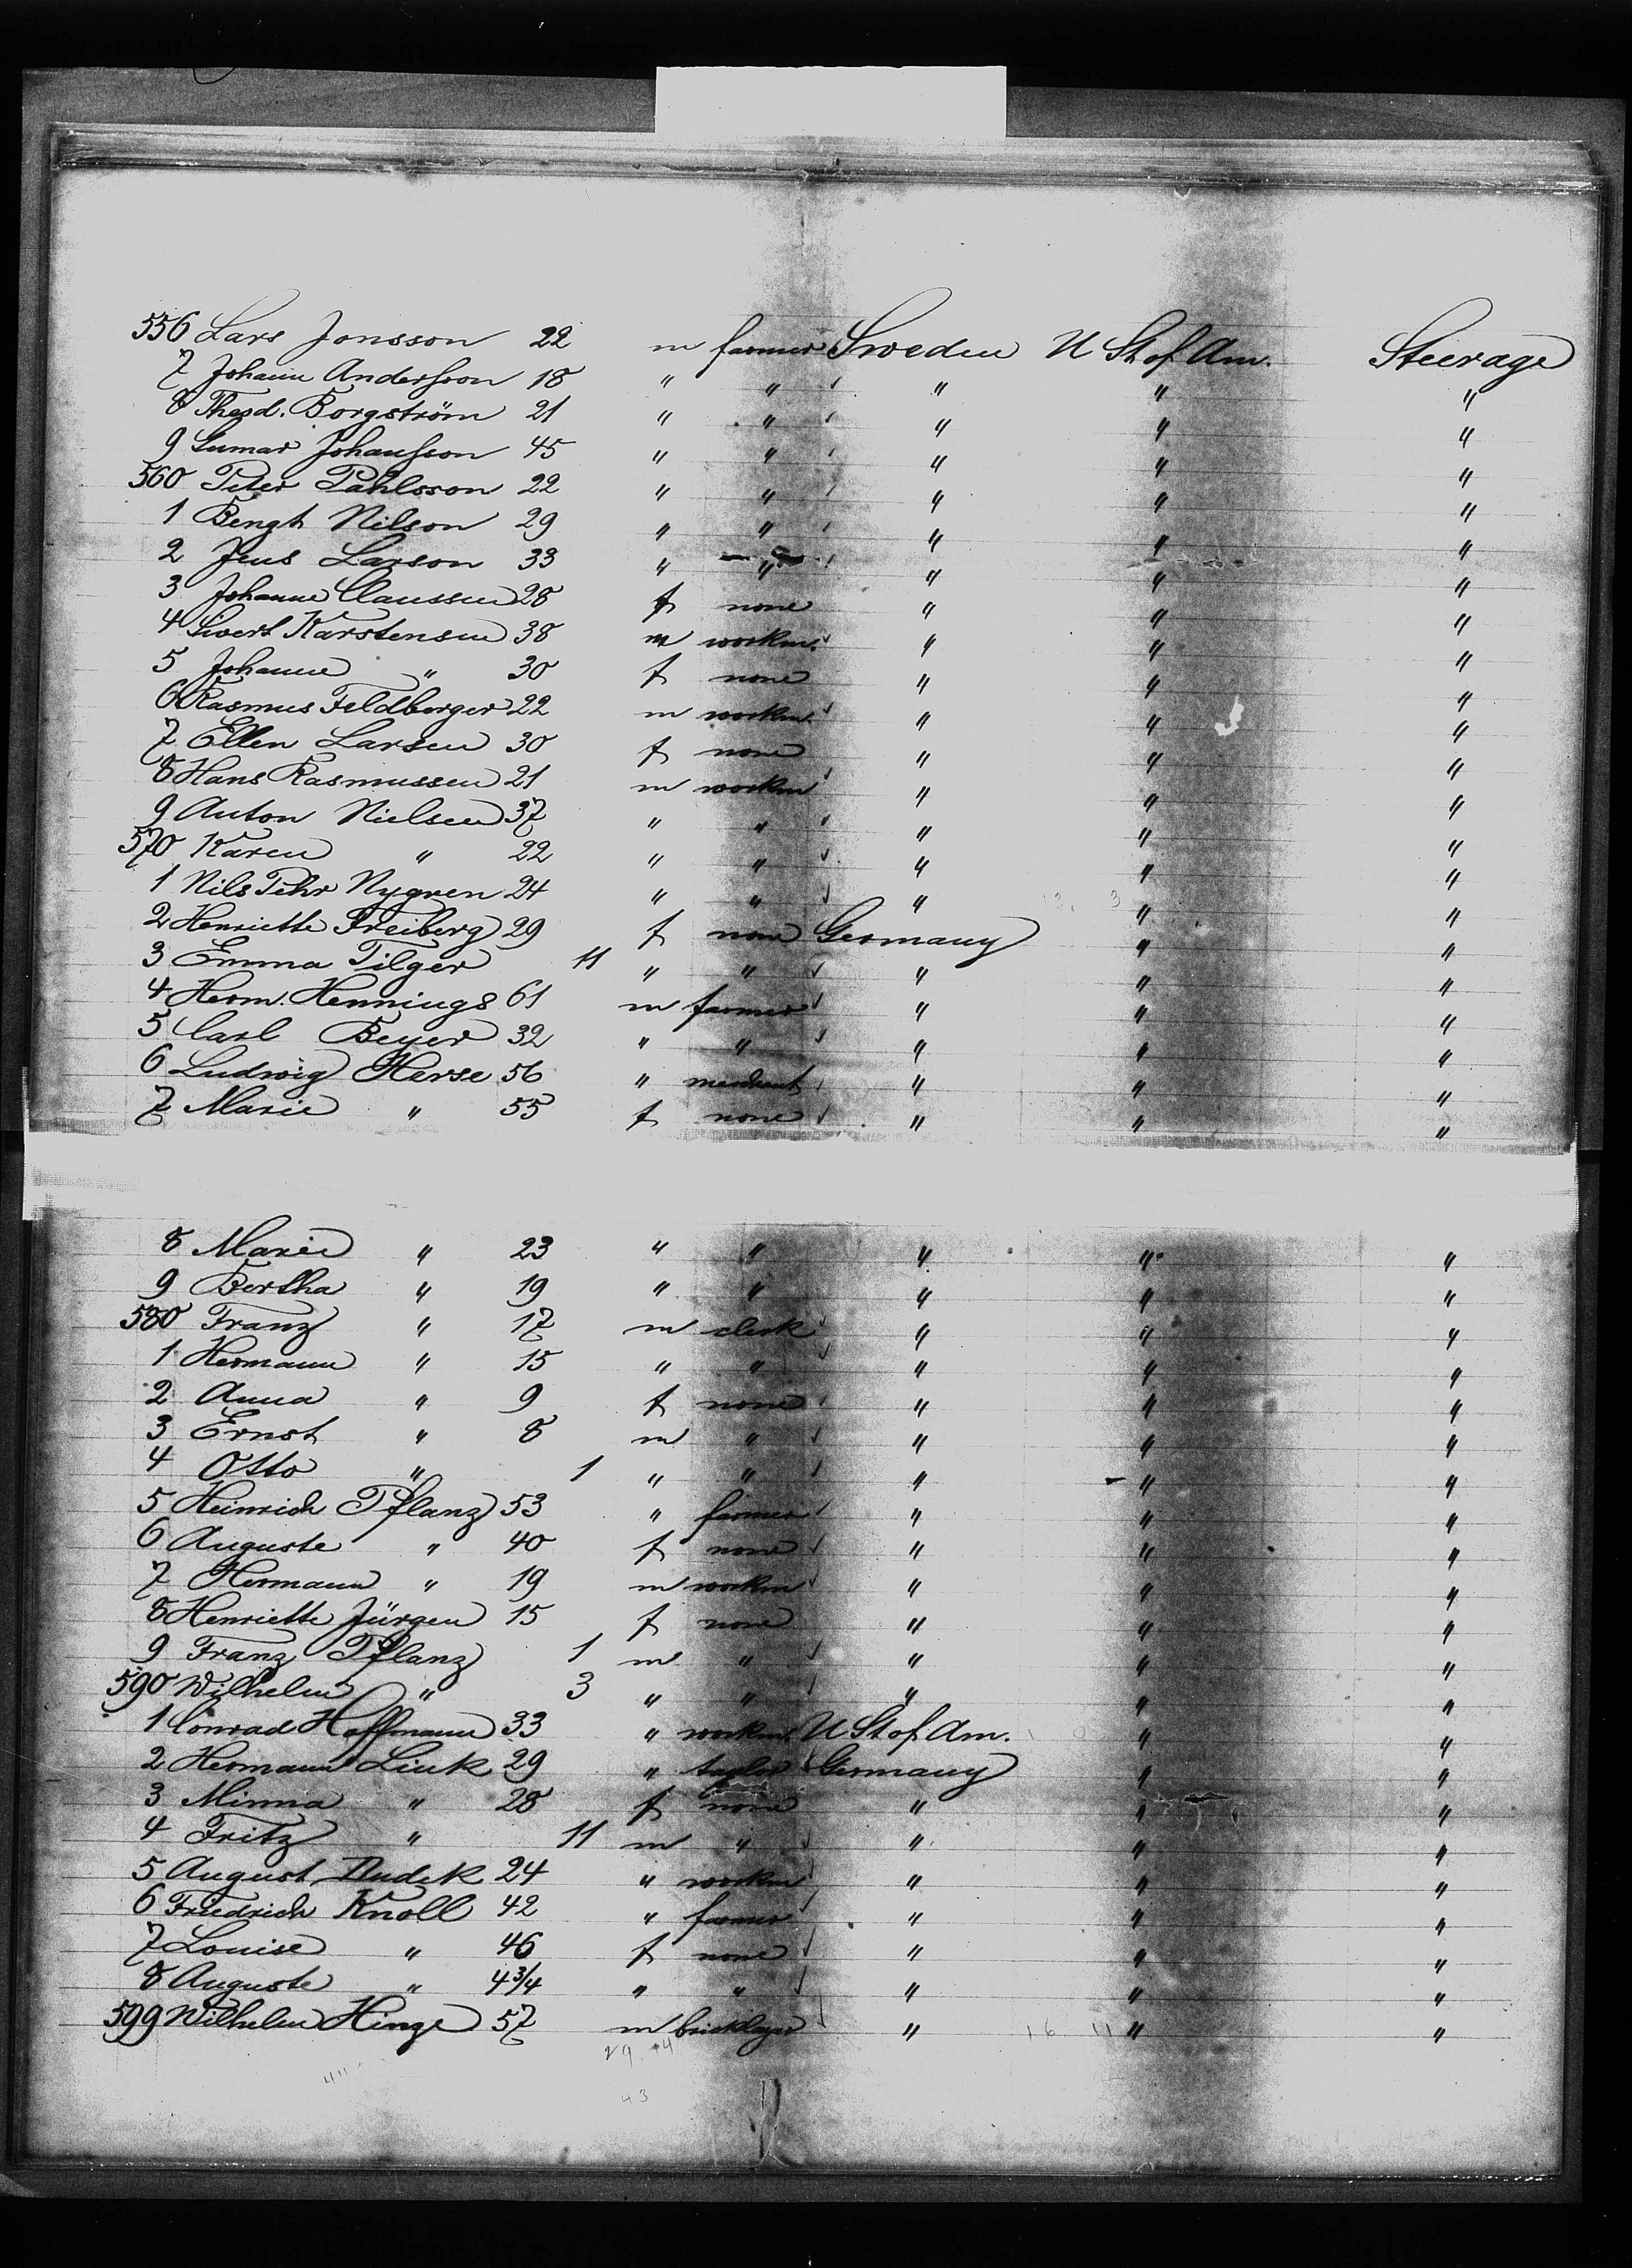 556 Lars Jonsson 22 m farmer Sweden U St of Am. Steerage
7 Johann Andersson 18 " " " " "
8 Theod. Borgström 21 " " " " "
9 Gumar Johansson 45 " " " " "
560 Peter Pahlsson 22 " " " " "
1 Bengt Nilson 29 " " " " "
2 Jens Larson 33 " " " " "
3 Johanne Claussen 28 f none " " "
4 Sivert Karstensen 38 m workm. " " "
5 Johanne " 30 f none " " "
6 Rasmus Feldberger 22 m workm. " " "
7 Ellen Larsen 30 f none " " "
8 Hans Rasmussen 21 m workm " " "
9 Anton Nielsen 37 " " " " "
570 Karen " 22 " " " " "
1 Nils Pehr Nygren 24 " " " " "
2 Henriette Freiberg 29 f none Germany " "
3 Emma Tilger 11 " " " " "
4 Herm. Hennings 61 m farmer " " "
5 Carl Beyer 32 " " " " "
6 Ludwig Herse 56 " merchant " " "
7 Marie " 55 f none " " "
8 Marie " 23 " " " " "
9 Bertha " 19 " " " " "
580 Franz " 17 m clerk " " "
1 Hermann " 15 " " " " "
2 Anna " 9 f none " " "
3 Ernst " 8 m " " " "
4 Otto " 1 " " " " "
5 Heinrich Pflanz 53 " farmer " " "
6 Auguste " 40 f none " " "
7 Hermann " 19 m workm " " "
8 Henriette Jürgen 15 f none " " "
9 Franz Pflanz 1 m " " " "
590 Wilhelm " 3 " " " " "
1 Conrad Hoffmann 33 " workm. U St of Am. " "
2 Hermann Link 29 " taylor Germany " "
3 Minna " 28 f none " " "
4 Fritz " 11 m " " " "
5 August Dudek 24 " workm " " "
6 Friedrich Knoll 42 " farmer " " "
7 Louise " 46 f none " " "
8 Auguste " 4 3/4 " " " " "
599 Wilhelm Hinze 57 m bricklayer " " "